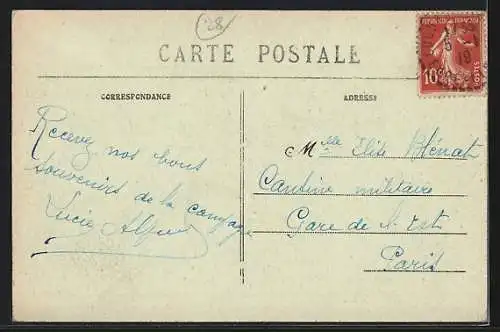 28
CARTE POSTALE
RÉPUBLIQUE FRANÇAISE
10c
POSTES
CORRESPONDANCE
ADRESSE
Recevez nos bons
souvenirs de la campagne
Lucie
Mlle Elise
Cantine militaire
Gare de l'Est
Paris